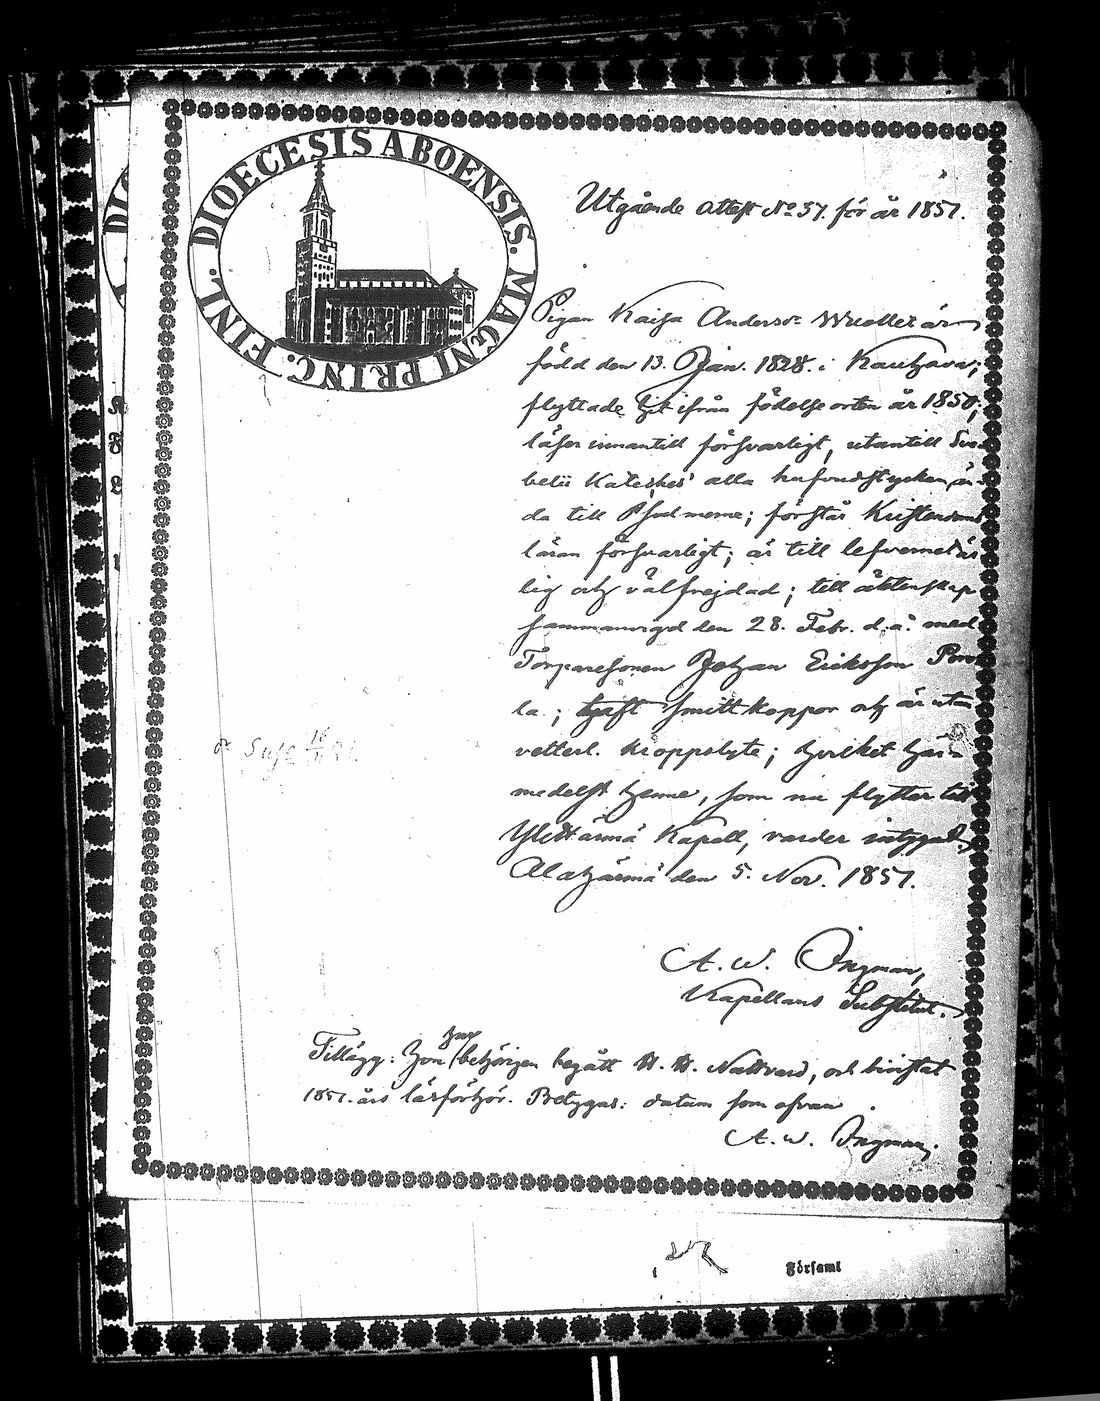 DIOECESIS ABOENSIS. MAGNI PRINC. FINL.
Utgående attest No 37. för år 1851.
Pigan Kaisa Andersdr är
född den 13. Jan. 1828. i Kauhava;
flyttade hit ifrån födelse orten år 1850;
läser innantill försvarligt, utantill Sve-
belii Kateches' alla hufvudstycken än-
da till Psalmerne; förstår Kristendoms
läran försvarligt; är till lefvernet är
lig och välfrejdad; till äktenskap
sammanvigd den 28. Febr. d. å. med
Torparesonen Johan Eriksson
la; haft smittkoppor och är utan
vetterl. kroppslyte; hvilket här-
medelst henne, som nu flyttar till
Ylihärmä Kapell, varder intygadt,
Alahärmä den 5. Nov. 1851.
A. W. Ingman,
Kapellans Substitut.
Tillägg: Hon har behörigen begått H. H. Nattvard, och bivistat
1851. års läsförhör. Betygas: datum som ofvan.
A. W. Ingman.
Församl